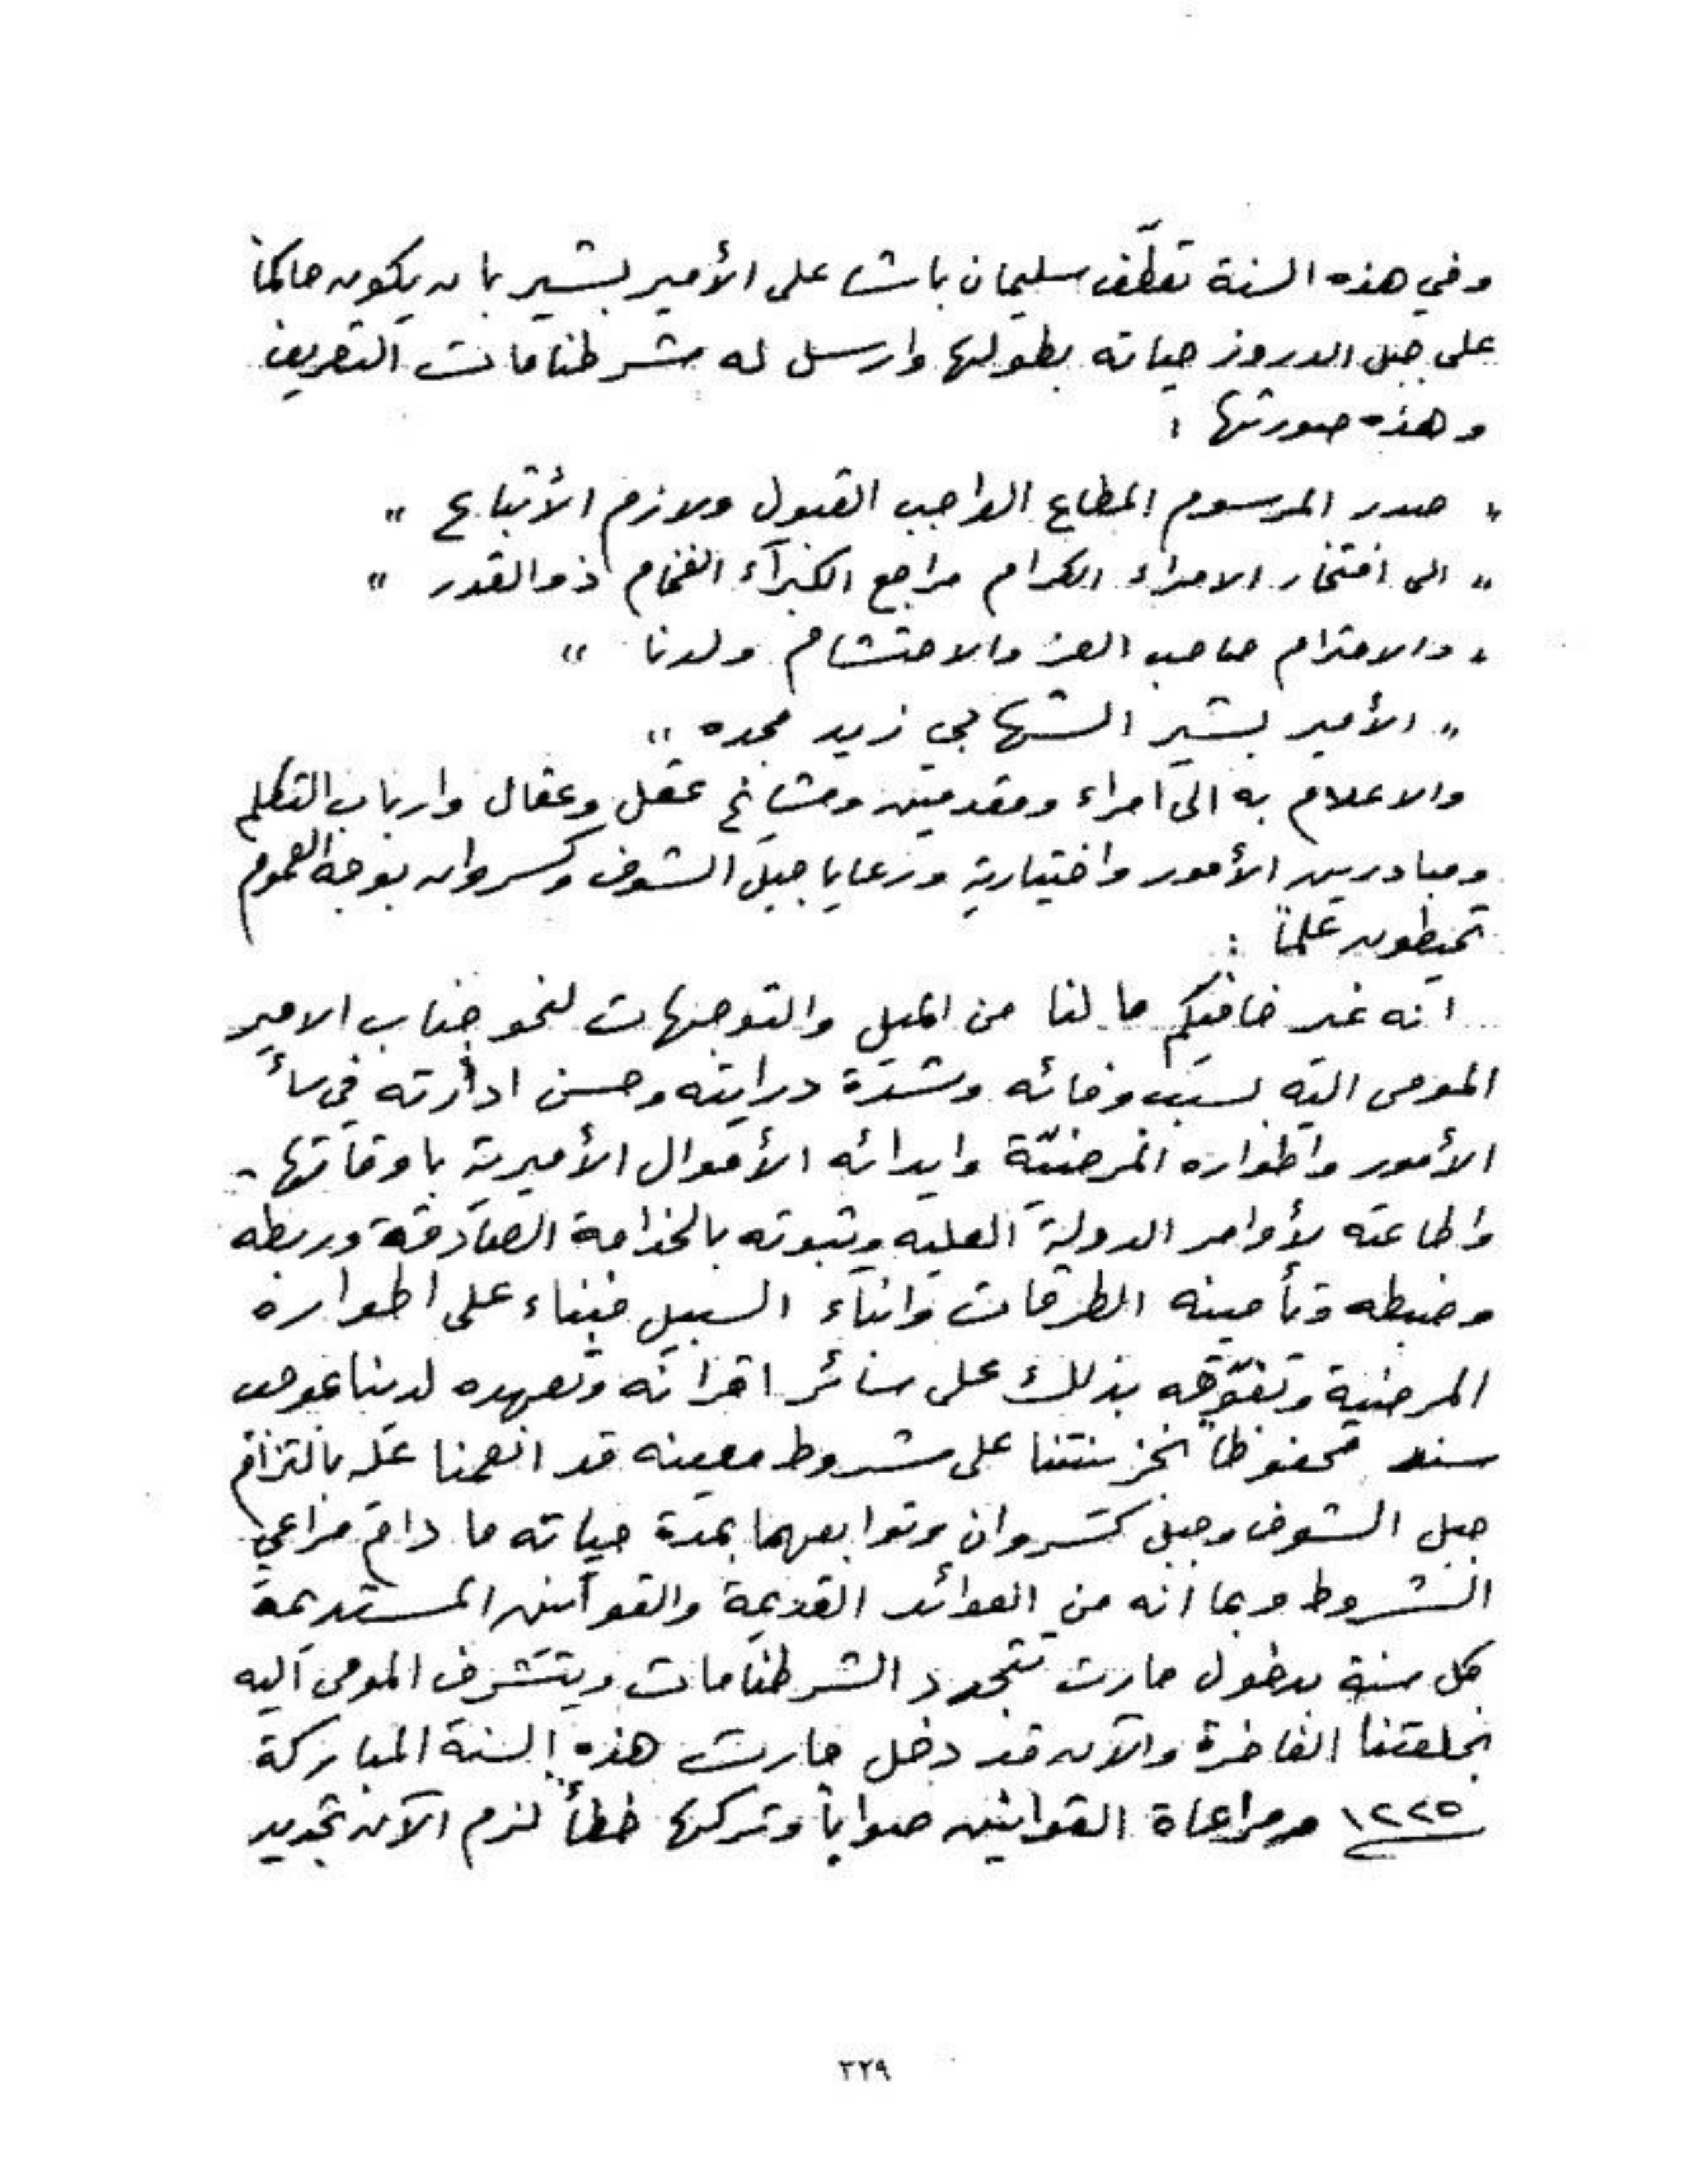 وفي هذه السنة تعطّف سليمان باشا على الأمير بشير بان يكون حاكماً
على جبل الدروز حياته بطولها وارسل له شرطنامات التعريف
وهذه صورتها :
" صدر المرسوم المطاع الواجب القبول ولازم الأتباع "
" الى افتخار الامراء الكرام مراجع الكبرآء الفخام ذو القدر "
" والاحترام صاحب العز والاحتشام ولدنا "
" الأمير بشير الشهابي زيد مجده "
والاعلام به الى امراء ومقدمين ومشايخ عقل وعقال وارباب التكلم
ومبادرين الأمور واختيارية ورعايا جبل الشوف وكسروان بوجه العموم
تحيطون علماً :
انه غير خافيكم ما لنا من الميل والتوجهات لنحو جناب الامير
المومى اليه بسبب وفائه وشدّة درايته وحسن ادارته في سائر
الأمور واطواره المرضيّة وايدائه الأموال الأميرية باوقاتها -
واطاعته لأوامر الدولة العليه وثبوته بالخدامة الصادقة وربطه
وضبطه وتأمينه الطرقات وانباء السبيل فبناء على اطواره
المرضية وتفوّقه بذلك على سائر اقرانه وتعهده لدينا عوض
سند محفوظاً بخزينتنا على شروط معينه قد انعمنا عله بالتزام
جبل الشوف وجبل كسروان وتوابعهما بمدة حياته ما دام مراعي
الشروط وبما انه من العوائد القديمة والقوانين المستديمة
كل سنة بدخول مارت تتجدد الشرطنامات ويتشرف المومى اليه
بخلعتنا الفاخرة والآن قد دخل مارت هذه السنة المباركة
١٢٢٥ ومراعاة القوانين صواباً وتركها خطأ لزم الآن تجديد
٢٢٩